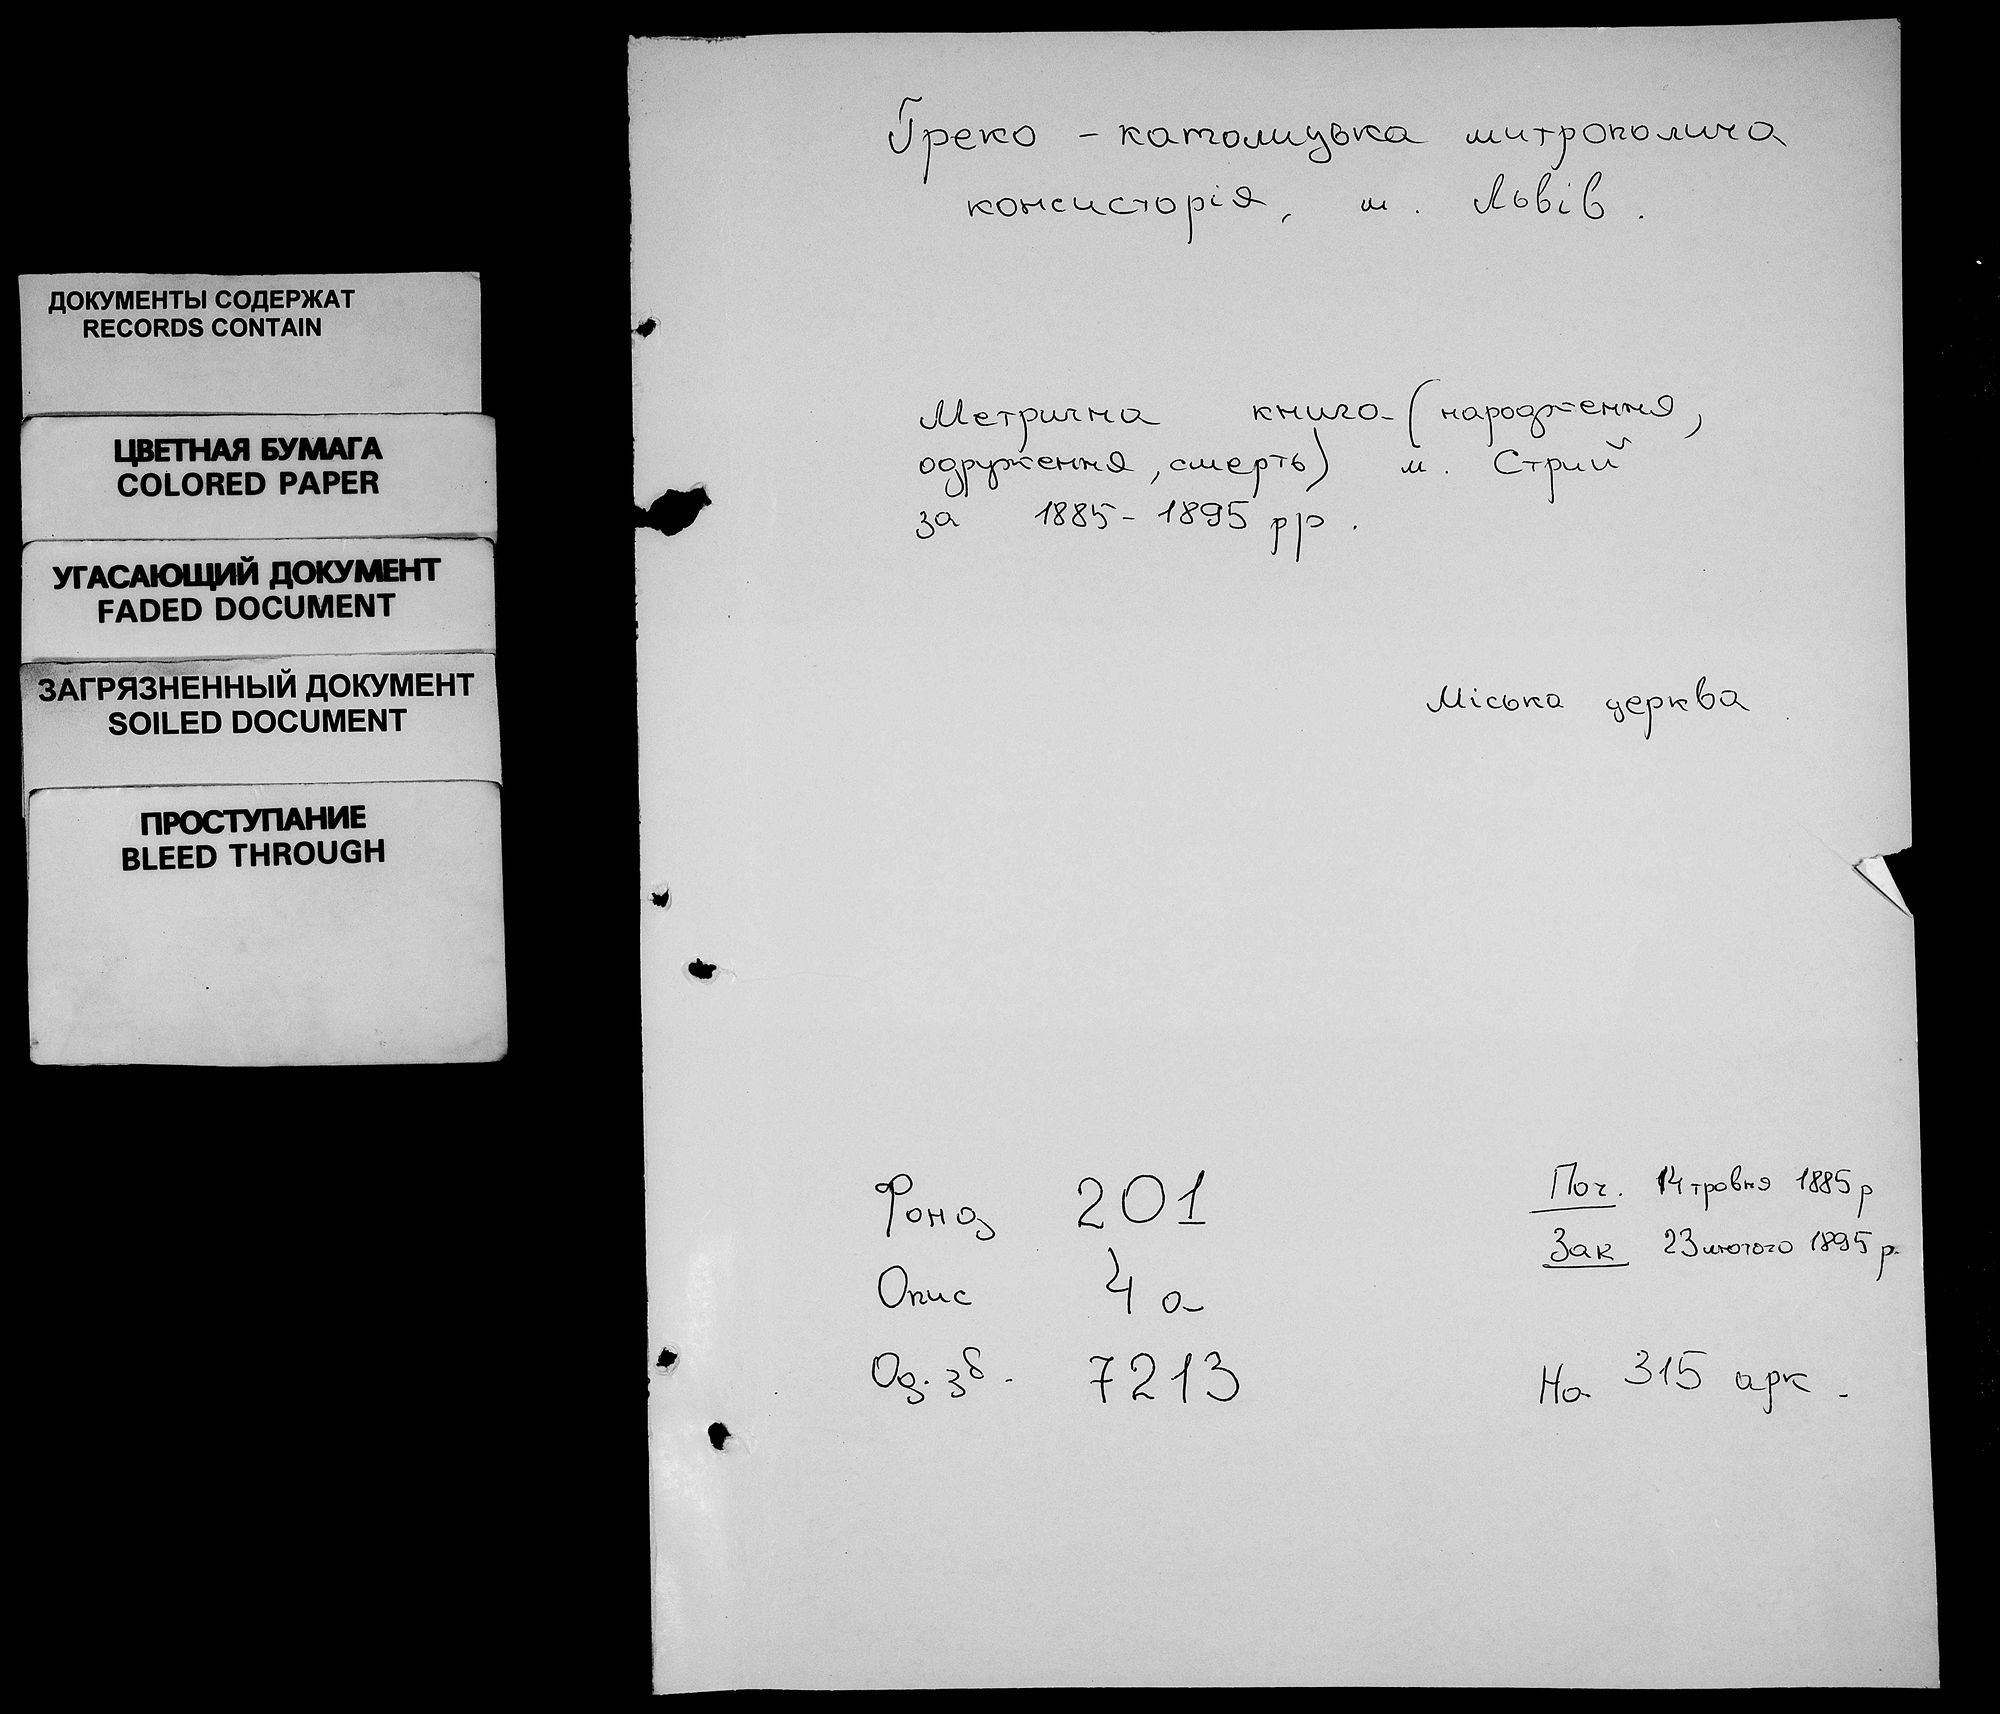 ДОКУМЕНТЫ СОДЕРЖАТ
RECORDS CONTAIN
ЦВЕТНАЯ БУМАГА
COLORED PAPER
УГАСАЮЩИЙ ДОКУМЕНТ
FADED DOCUMENT
ЗАГРЯЗНЕННЫЙ ДОКУМЕНТ
SOILED DOCUMENT
ПРОСТУПАНИЕ
BLEED THROUGH
Греко - католицька митрополича
консисторія, м. Львів.
Метрична книга (народження,
одруження, смерть) м. Стрий
за 1885 - 1895 рр.
Міська церква
Фонд 201
Опис 4а
Од. зб. 7213
Поч. 14 травня 1885 р
Зак 23 лютого 1895 р.
На 315 арк.